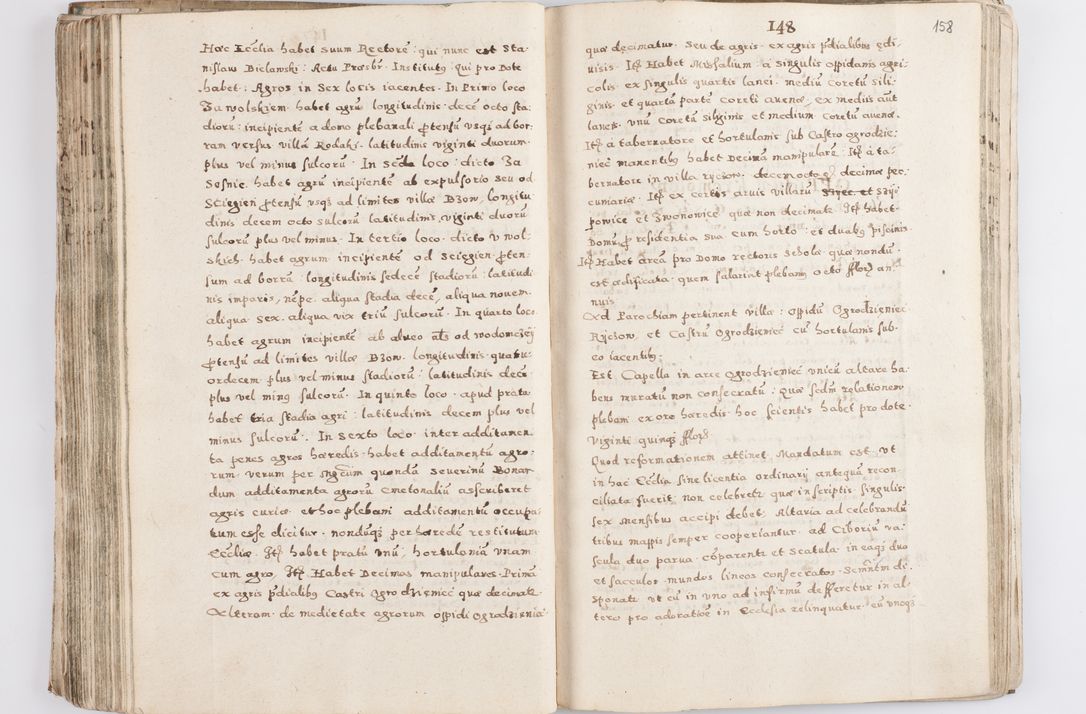 Hæc Ecclia habet suum Rectorē: qui nunc est Sta-
nislaus Bielawski: Actu Præsbr. Institutꝯ qui pro Dote
habet: Agros in sex locis iacentes. In Primo loco
Zawolskiem. habet agrū longitudinis decē octo sta-
diorū: incipientē a domo plebanali protensū usqꝫ ad bor-
ram versus villā Rodaki. latitudinis viginti duorum
plus vel minus sulcorū. In secdo loco: dicto Za
Sesnie. habet agrū incipientē ab expulsorio seu od
Sciegien protensū usqꝫ ad limites villæ Dzow. longitu-
dinis decem octo sulcorū latitudinis viginti duorū
sulcorū plus vel minus. In tertio loco. dicto v wol-
skich. habet agrum incipientē od Sciegien proten-
sum ad borrū. longitudinis sedecē stadiorū: latitudi-
nis imparis, nēpe. aliqua stadia decē, aliqua novem.
aliqua sex. aliqua vix triū sulcorū. In quarto loco
habet agrum incipientē ab alueo als od wodomczey
protensū ad limites villæ Dzow. longitudinis quatu-
ordecem plus vel minus stadiorū: latitudinis decē
plus vel minꝯ sulcorū. In quinto loco. apud prata
habet tria stadia agri: latitudinis decem plus vel
minus sulcorū. In sexto loco. inter additamen-
ta penes agros hæredis. habet additamentū agro-
rum. verum per Mgcum quondā Severinū Bonar
dum additamenta agrorū Cmetonaliū asscriberet
agris curiæ. et hoc plebani additamentū occupa-
tum esse dicitur. nondūqꝫ per hæredē restitutum
Eccliæ. Itꝫ habet pratū vnū, hortulaniā vnam
cum agro. Itꝫ Habet Decimas manipulares. Primā
ex agris pdialibꝯ Castri Ogrodzieniec quæ decimatr
Alteram. de medietate agrorum oppidi Ogrodzieniæ
148
158
quæ decimatur. seu de agris. ex agris pdialibus edi-
uisis. Itꝫ Habet Missalium: á singulis oppidanis agri-
colis. ex singulis quartis lanei. mediū coretū sili-
ginis. et quartā partē coreti auenæ, ex mediis aūt
laneis. vnū coretū siliginis et medium coretū auenæ.
Itꝫ a tabernatore et hortulanis sub Castro Ogrodzie-
niec manentibꝯ habet Decimā manipularē. Itꝫ á ta-
bernatore in villa ryczow. decem octo gͬ decimæ pec-
cuniariæ. Itꝫ ex certis aruis villarū et
powice et Zwonowice quæ non decimatr. Itꝫ habet
Domū pro residentia sua. cum horto. et duabꝯ piscinis.
Itꝫ Habet areā pro Domo rectoris scholæ quæ nondū
est ædificata. quem salariat plebanꝯ octo florꝫ an-
nuis
Ad Parochiam pertinent villæ: Oppidū Ogrodzieniec
Ryczow, et Castrū Ogrodzieniec cū hortulanis sub-
eo iacentibꝯ.
Est Capella in arce Ogrodzieniec vnicū altare ha-
bens muratū non consecratū. Quæ secdm relationem
plebani ex oro hæredis hoc scientis habet pro dote.
Viginti quinqꝫ florꝫ
Quod reformationem attinet. Mandatum est. vt
in hac Ecclia sine licentia ordinarij antequā recon-
ciliata fuerit non celebretr. quæ in scriptis singulis
sex mensibus accipi debet. Altaria ad celebrandū
tribus mappis semper cooperiantur. ad Ciborium va-
scula duo parua. cōparentr et scatula. in eaqꝫ duo
et sacculos mundos lineos consecratos. Semrntm di-
sponatr vt cū in vno ad infirmū defferetur in al-
tero pro adoratiōe in Ecclesia relinquatur. cū vncqꝫ